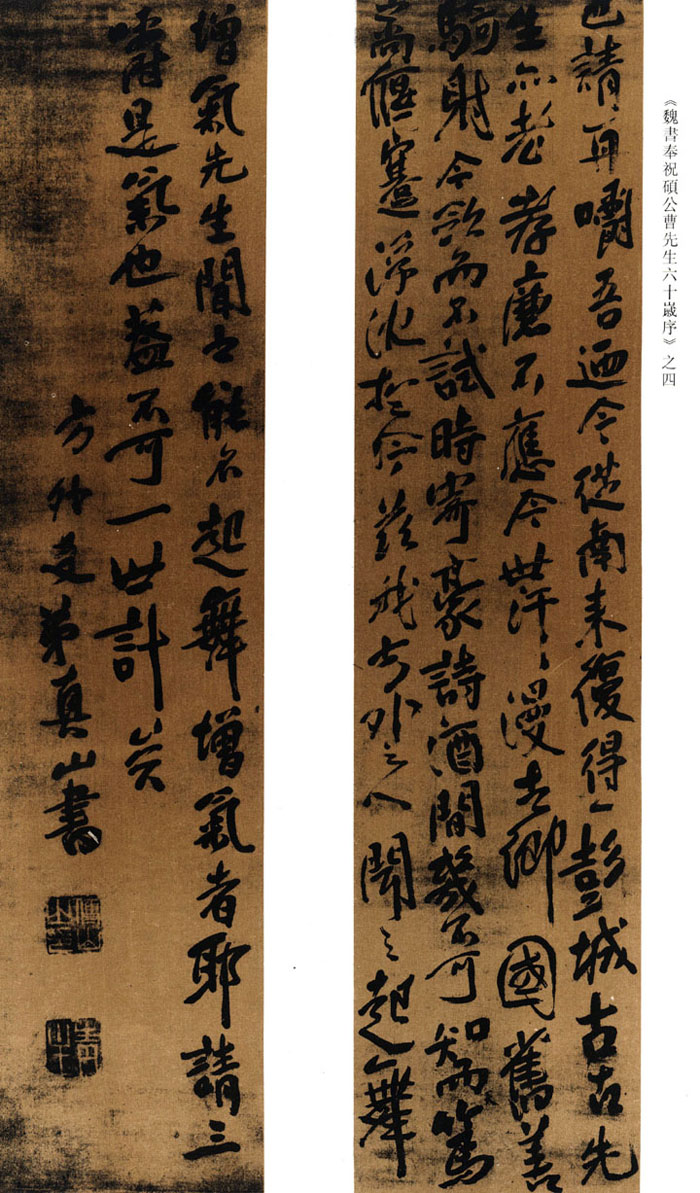 《魏書奉祝碩公曹先生六十歲序》之四
也請再嚼吾迺今從南來復得一彭城古古先
生亦老孝廉不應今世汗漫去鄉國舊善
騎射今飲而不試時寄豪詩酒間幾不可知而篤
當偃蹇浮沈於今茲我方外之人聞之起舞
增氣先生聞之能不起舞增氣者耶請三
嚼是氣也蓋不可一世計矣
方外友弟真山書